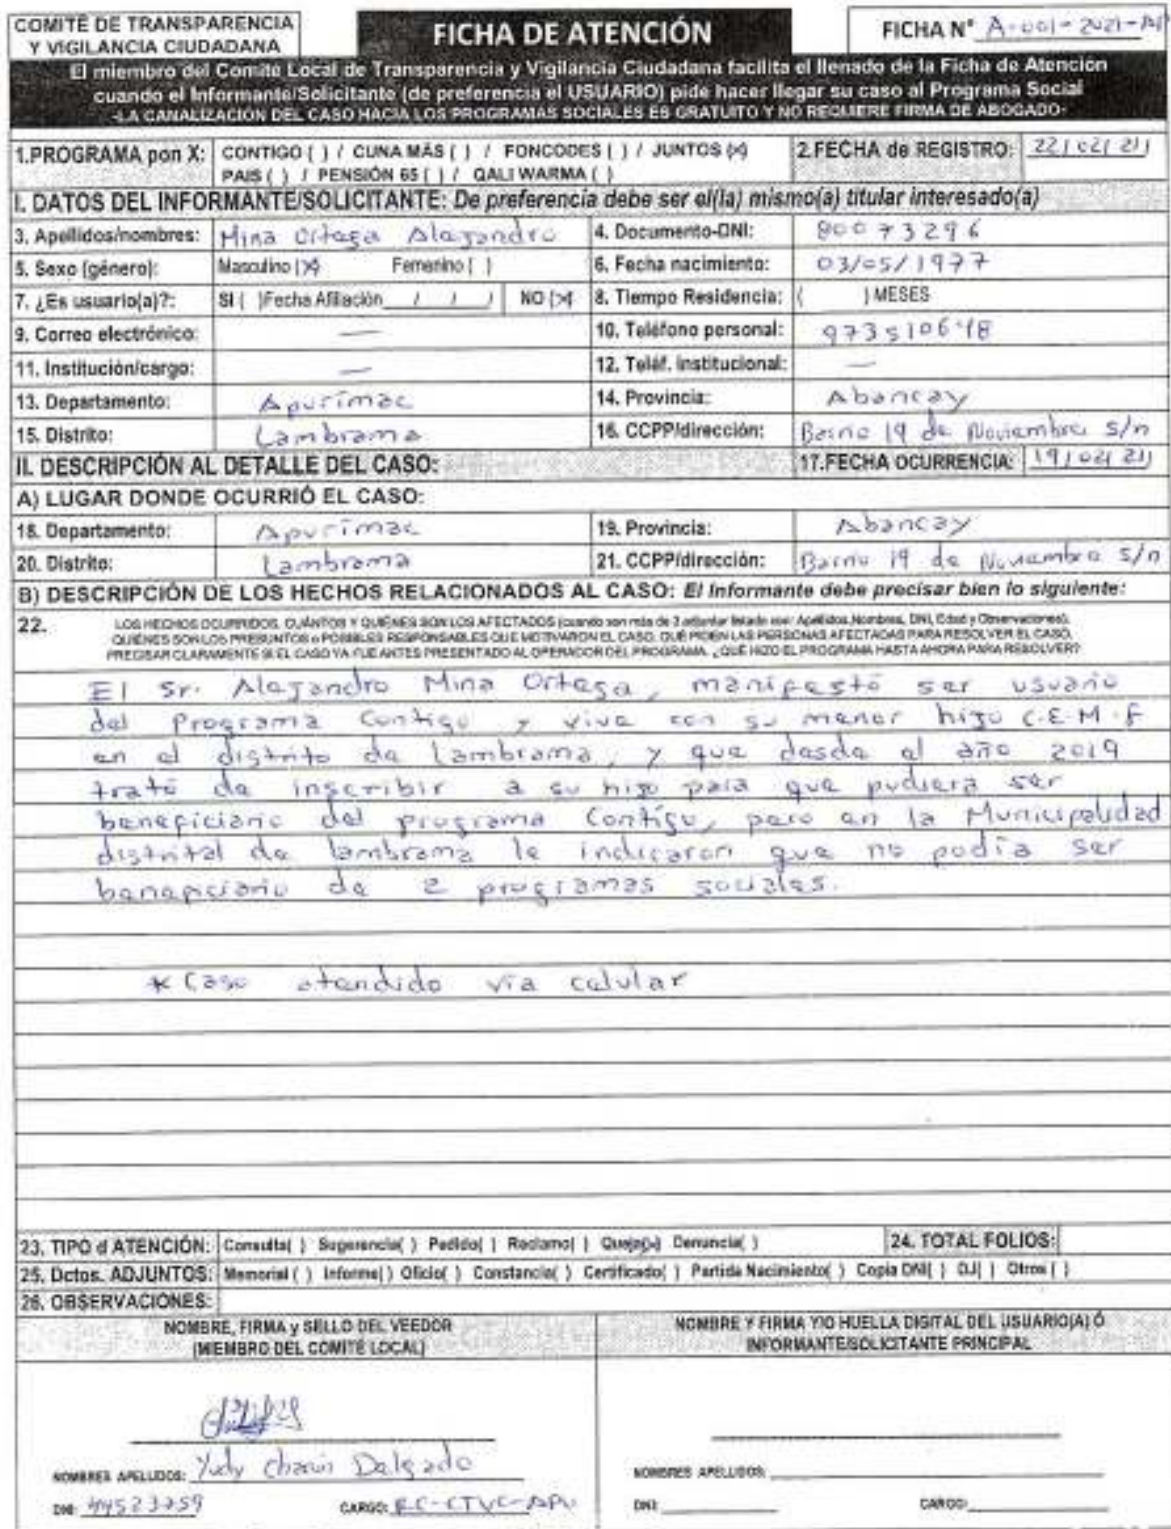 COMITÉ DE TRANSPARENCIA
Y VIGILANCIA CIUDADANA
FICHA DE ATENCIÓN
FICHA N° A-001-2021-AP
El miembro del Comité Local de Transparencia y Vigilancia Ciudadana facilita el llenado de la Ficha de Atención
cuando el Informante/Solicitante (de preferencia el USUARIO) pide hacer llegar su caso al Programa Social
-LA CANALIZACIÓN DEL CASO HACIA LOS PROGRAMAS SOCIALES ES GRATUITO Y NO REQUIERE FIRMA DE ABOGADO-
1.PROGRAMA pon X: CONTIGO ( ) / CUNA MÁS ( ) / FONCODES ( ) / JUNTOS (X)
PAIS ( ) / PENSIÓN 65 ( ) / QALI WARMA ( )
2.FECHA de REGISTRO: 22/02/21
I. DATOS DEL INFORMANTE/SOLICITANTE: De preferencia debe ser el(la) mismo(a) titular interesado(a)
3. Apellidos/nombres: Mina Ortega Alejandro 4. Documento-DNI: 80073296
5. Sexo (género): Masculino (X) Femenino ( ) 6. Fecha nacimiento: 03/05/1977
7. ¿Es usuario(a)?: SI ( ) Fecha Afiliación / / / NO (X) 8. Tiempo Residencia: ( ) MESES
9. Correo electrónico: — 10. Teléfono personal: 973510648
11. Institución/cargo: — 12. Teléf. institucional: —
13. Departamento: Apurímac 14. Provincia: Abancay
15. Distrito: Lambrama 16. CCPP/dirección: Barrio 19 de Noviembre s/n
II. DESCRIPCIÓN AL DETALLE DEL CASO: 17.FECHA OCURRENCIA: 19/02/21
A) LUGAR DONDE OCURRIÓ EL CASO:
18. Departamento: Apurímac 19. Provincia: Abancay
20. Distrito: Lambrama 21. CCPP/dirección: Barrio 19 de Noviembre s/n
B) DESCRIPCIÓN DE LOS HECHOS RELACIONADOS AL CASO: El Informante debe precisar bien lo siguiente:
22. LOS HECHOS OCURRIDOS, CUÁNTOS Y QUIÉNES SON LOS AFECTADOS (cuando son más de 3 adjuntar listado con: Apellidos, Nombres, DNI, Edad y Observaciones).
QUIÉNES SON LOS PRESUNTOS o POSIBLES RESPONSABLES QUE MOTIVARON EL CASO. QUÉ PIDEN LAS PERSONAS AFECTADAS PARA RESOLVER EL CASO.
PRECISAR CLARAMENTE SI EL CASO YA FUE ANTES PRESENTADO AL OPERADOR DEL PROGRAMA. ¿QUÉ HIZO EL PROGRAMA HASTA AHORA PARA RESOLVER?
El Sr. Alejandro Mina Ortega, manifestó ser usuario
del Programa Contigo y vive con su menor hijo C.E.M.F
en el distrito de Lambrama, y que desde el año 2019
trató de inscribir a su hijo para que pudiera ser
beneficiario del programa Contigo, pero en la Municipalidad
distrital de lambrama le indicaron que no podía ser
beneficiario de 2 programas sociales.
* Caso atendido vía celular
23. TIPO d ATENCIÓN: Consulta( ) Sugerencia( ) Pedido( ) Reclamo( ) Queja(X) Denuncia( ) 24. TOTAL FOLIOS:
25. Dctos. ADJUNTOS: Memorial ( ) Informe( ) Oficio( ) Constancia( ) Certificado( ) Partida Nacimiento( ) Copia DNI( ) DJ( ) Otros ( )
26. OBSERVACIONES:
NOMBRE, FIRMA y SELLO DEL VEEDOR
(MIEMBRO DEL COMITÉ LOCAL)
NOMBRE Y FIRMA Y/O HUELLA DIGITAL DEL USUARIO(A) Ó
INFORMANTE/SOLICITANTE PRINCIPAL
NOMBRES APELLIDOS: Yudy Delgado
DNI: 44523759 CARGO: EC-CTVC-APU
NOMBRES APELLIDOS:
DNI: CARGO: